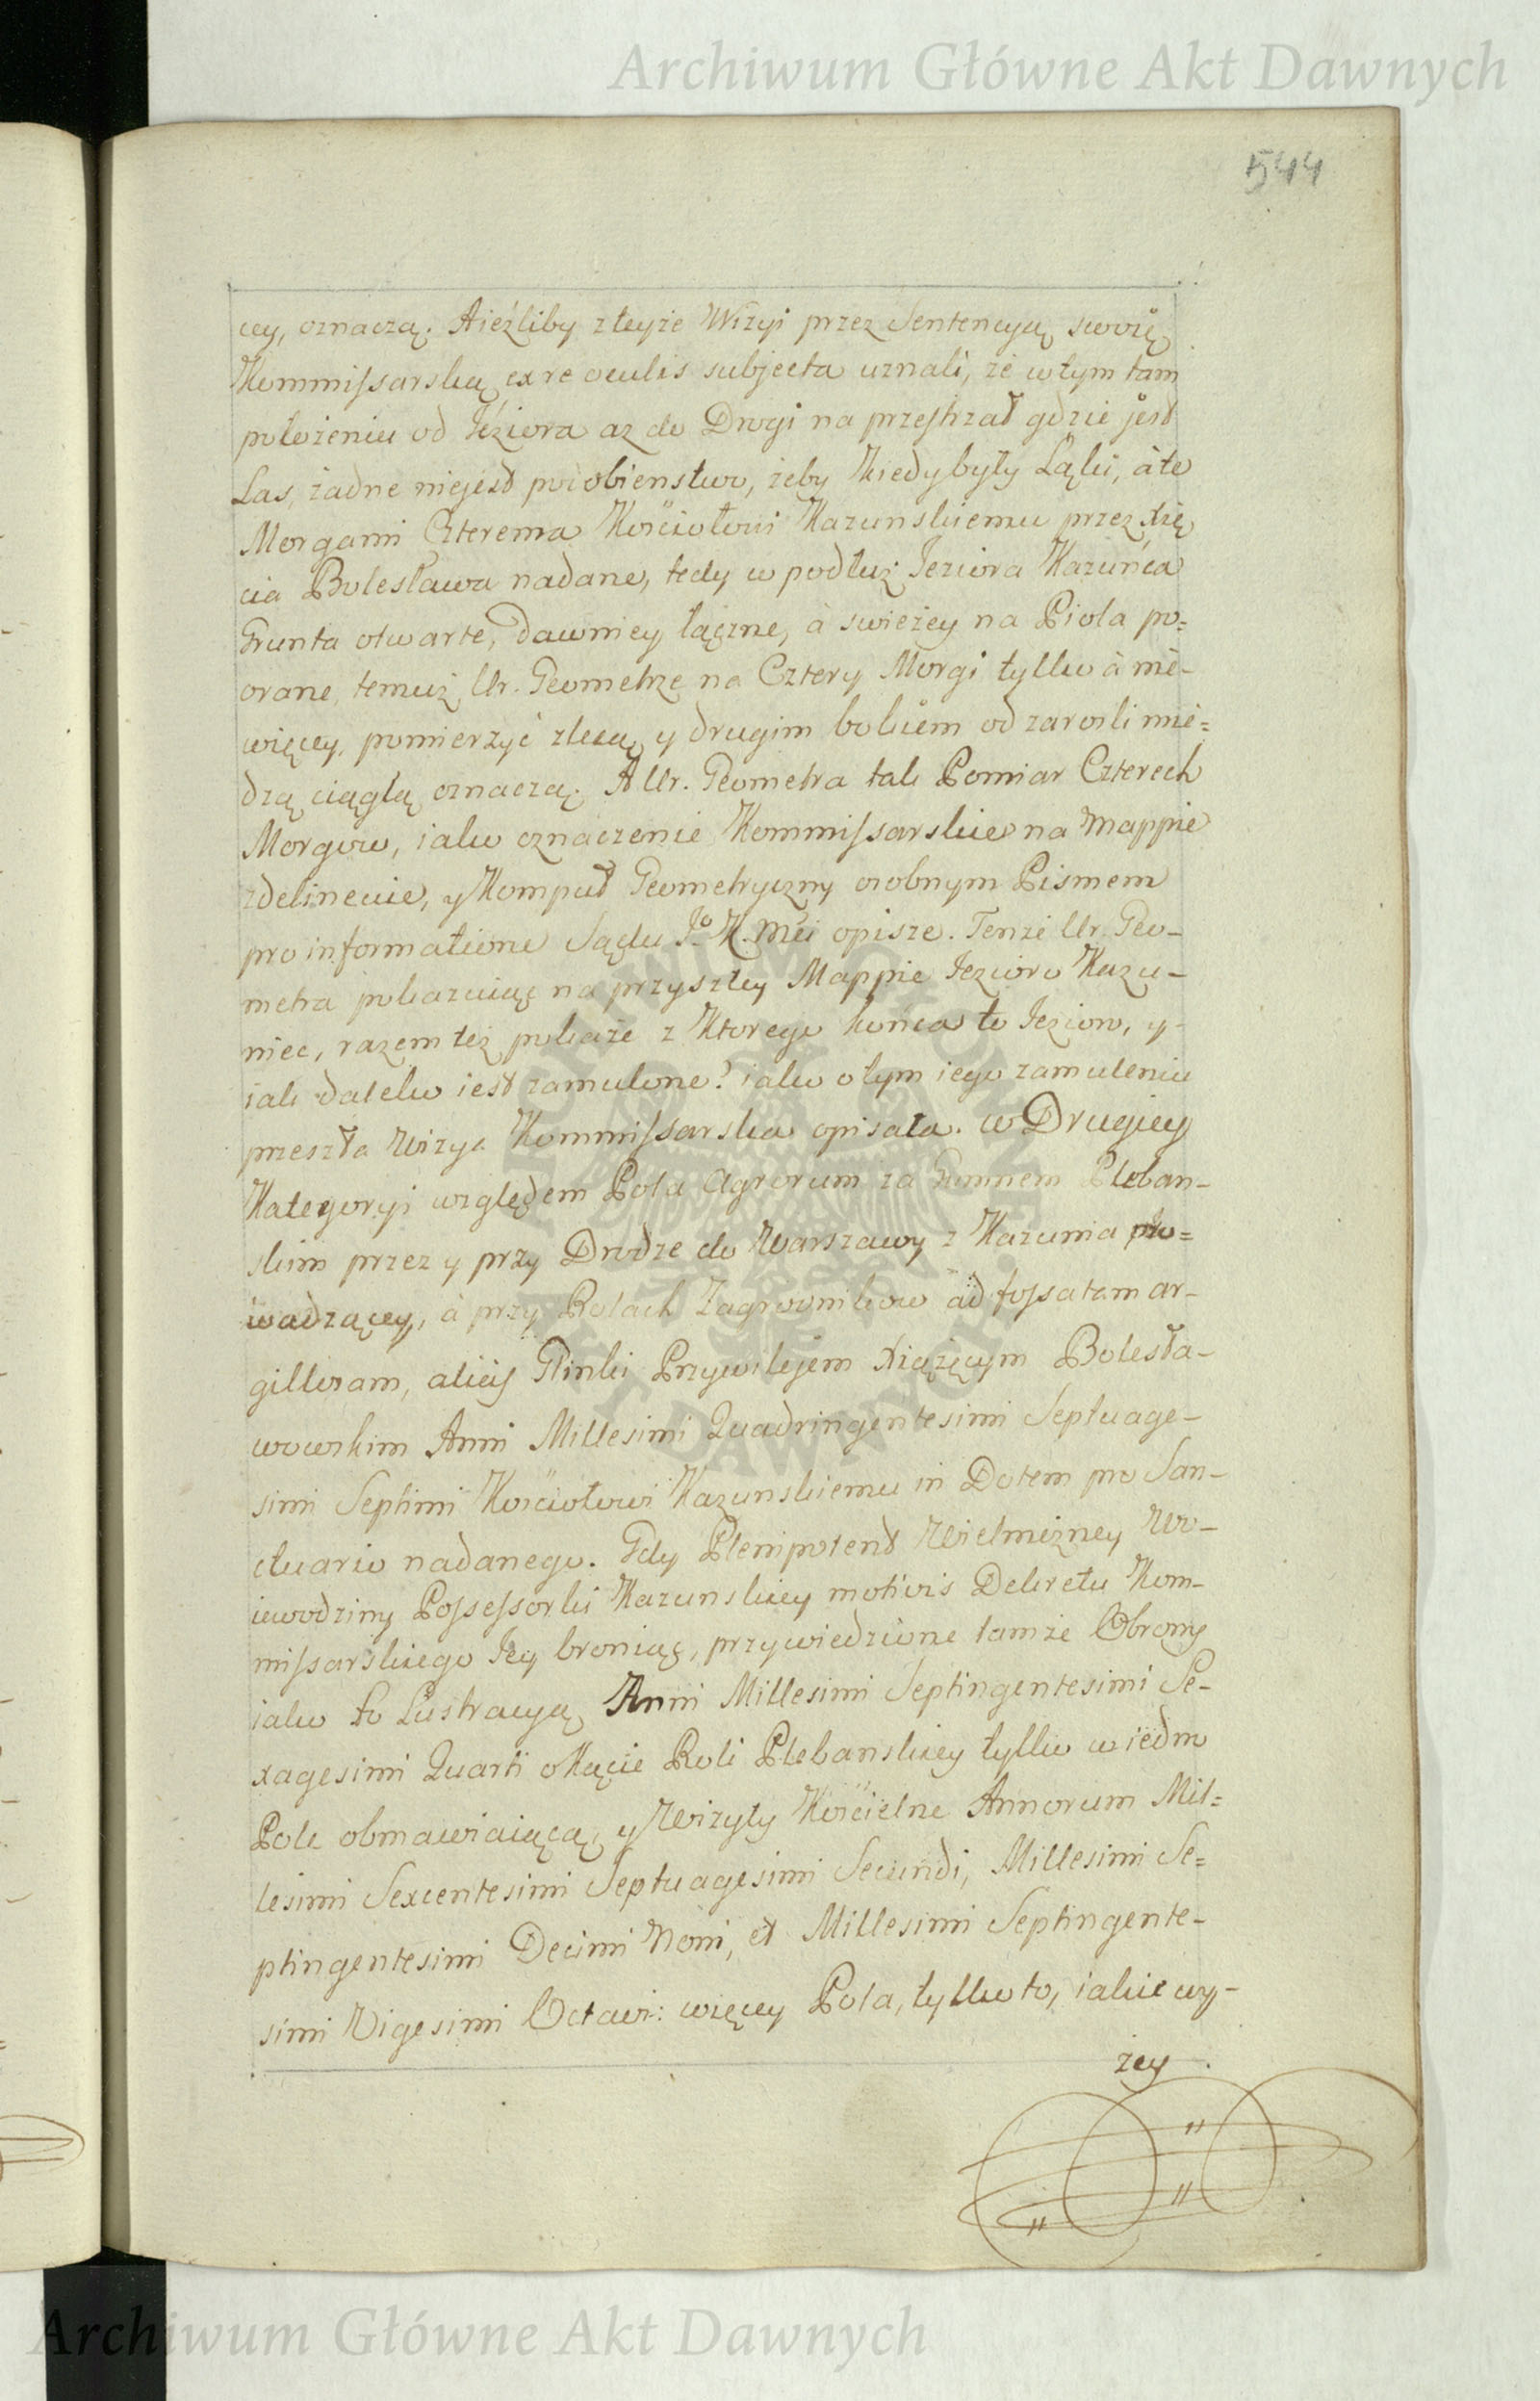 Archiwum Główne Akt Dawnych
544
cey, oznaczą. A ieźliby z teyże Wizyi przez Sentencyą swoię
Kommissarską ex re oculis subjecta uznali, że w tym tam
położeniu od Jeziora aż do Drogi na przestrzał gdzie jest
Las, żadne niejest podobienstwo, żeby kiedy były Łąki, à te
Morgami Czterema Kościołowi Kazunskiemu przez Xię
cia Bolesława nadane, tedy w podłuż Jeziora Kazuńca
Grunta otwarte, dawniey łączne, à swieżey na Piola po=
orane, temuż Ur. Geometrze na Cztery Morgi tylko à nie-
więcey, pomierzyć zlecą y drugim bokiem od zarosli mie=
dzą ciągłą oznaczą. A Ur. Geometra tak Pomiar Czterech
Morgow, iako oznaczenie Kommissarskie na Mappie
zdelineuie, y Komput Geometryczny osobnym Pismem
pro informatione Sądu Jo. K. Mći opisze. Tenże Ur. Geo-
metra pokazuiąc na przyszłey Mappie Jezioro Kazu-
niec, razem też pokaże z ktorego końca to Jezioro, y
iak daleko iest zamulone? iako o tym iego zamuleniu
przeszła Wizya Kommissarska opisała. w Drugiey
Kategoryi względem Pola Agrorum za Gumnem Pleban-
skim przez y przy Drodze do Warszawy z Kazunia pro=
wadzącey, à przy Rolach Zagrodnikow ad fossatam ar-
gillosam, aliàs Glinki Przywilejem Xiążęcym Bolesła-
wowskim Anni Millesimi Quadringentesimi Septuage-
simi Septimi Kościołowi Kazunskiemu in Dotem pro San-
ctuario nadanego. Gdy Plenipotent Wielmożney Wo-
iewodziny Possessorki Kazunskiey motivis Dekretu Kom-
missarskiego Jey broniąc, przywiedzione tamże Obrony
iako to Lustracyą Anni Millesimi Septingentesimi Se-
xagesimi Quarti o Kącie Roli Plebanskiey tylko w iedno
Pole obmawiaiącą, y Wizyty Kościelne Annorum Mil=
lesimi Sexcentesimi Septuagesimi Secundi, Millesimi Se=
ptingentesimi Decimi Noni, et Millesimi Septingente-
simi Vigesimi Octavi: więcey Pola, tylko to, iakie wy-
żey
Archiwum Główne Akt Dawnych